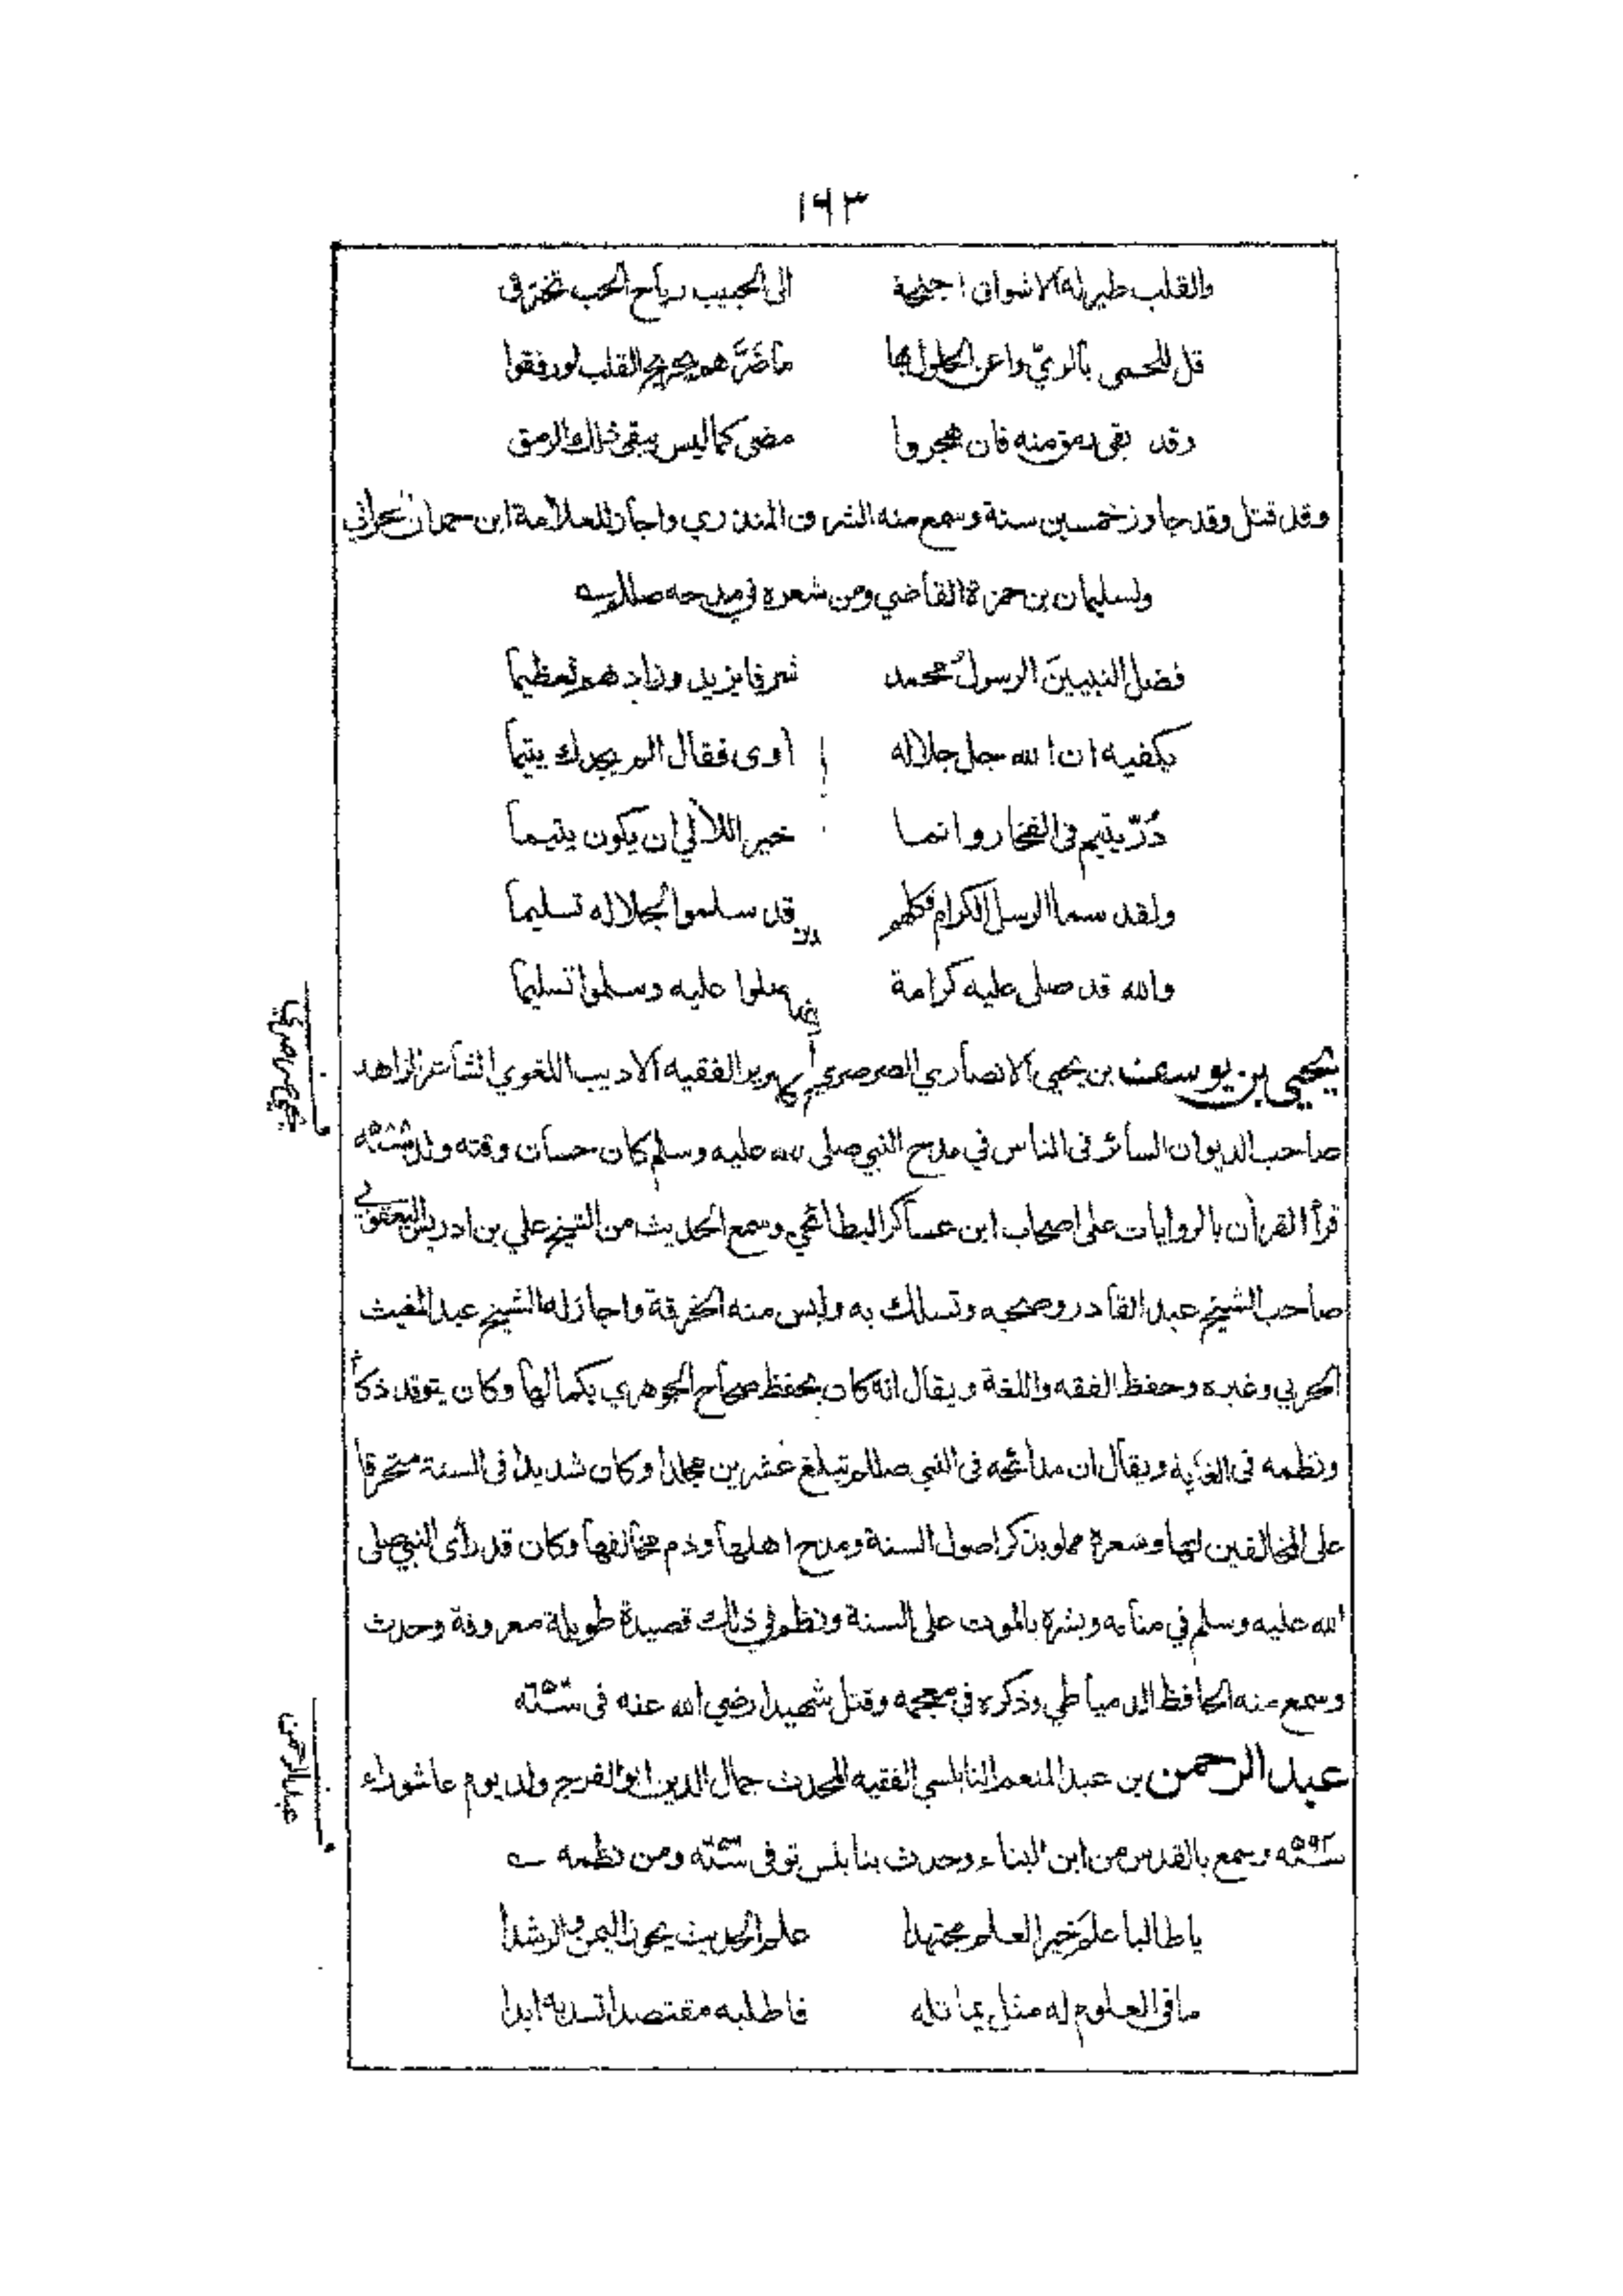 ١٩٣
والقلب طير له الاشواق اجنحة الى الحبيب رياح الحب تخترق
قل للحمى بالريّ واعن الحلول بها ما ضرّ هم بجريح القلب لو رفقوا
وقد بقى رمق منه فان هجروا مضى كما ليس يبقى ذلك الرمق
وقد قتل وقد جاوز خمسين سنة وسمع منه الشرف المنذري واجاز للعلامة ابن حمدان الحراني
ولسليمان بن حمزة القاضي ومن شعره في مدحه صللم
فضل النبيين الرسول محمد شرفا يزيد وزادهم تعظيما
يكفيه ان الله جل جلاله اوى فقال الم يجدك يتيما
دُرّ يتيم فى الفخار وانما خير اللآلي ان يكون يتيما
ولقد سما الرسل الكرام فكلهم قد سلموا لجلاله تسليما
والله قد صلى عليه كرامة صلوا عليه وسلموا تسليما
يحيى بن يوسف بن يحيى الانصاري الصرصري الضرير الفقيه الاديب اللغوي الشاعر الزاهد
صاحب الديوان السائر فى الناس في مدح النبي صلى الله عليه وسلم كان حسان وقته ولد
قرأ القرآن بالروايات على اصحاب ابن عساكر البطائحي وسمع الحديث من الشيخ علي بن ادريس اليعقوبي
صاحب الشيخ عبد القادر وصحبه وتسلك به ولبس منه الخرقة واجاز له الشيخ عبد المغيث
الحربي وغيره وحفظ الفقه واللغة ويقال انه كان يحفظ صحاح الجوهري بكمالها وكان يتوقد ذكاً
ونظمه فى الغاية ويقال ان مدائحه فى النبي صللم تبلغ عشرين مجلدا وكان شديدا فى السنة متحرقا
على المخالفين لها وشعره مملو بذكر اصول السنة ومدح اهلها وذم مخالفها وكان قد رأى النبي صلى
الله عليه وسلم في منامه وبشره بالموت على السنة ونظم في ذلك قصيدة طويلة معروفة وحدث
وسمع منه الحافظ الدمياطي وذكره في معجمه وقتل شهيدا رضي الله عنه فى ٦٥٦ﻪ
عبد الرحمن بن عبد المنعم النابلسي الفقيه المحدث جمال الدين ابو الفرج ولد يوم عاشوراء
سنة ٥٩٤ وسمع بالقدس من ابن البناء وحدث بنابلس توفى ومن نظمه
يا طالبا علم خير العلم مجتهدا علم الحديث يحوز اليمن والرشدا
ما فى العلوم له مثل يماثله فاطلبه مقتصدا تسد به ابدا
يحيى صرصري
عبد الرحمن